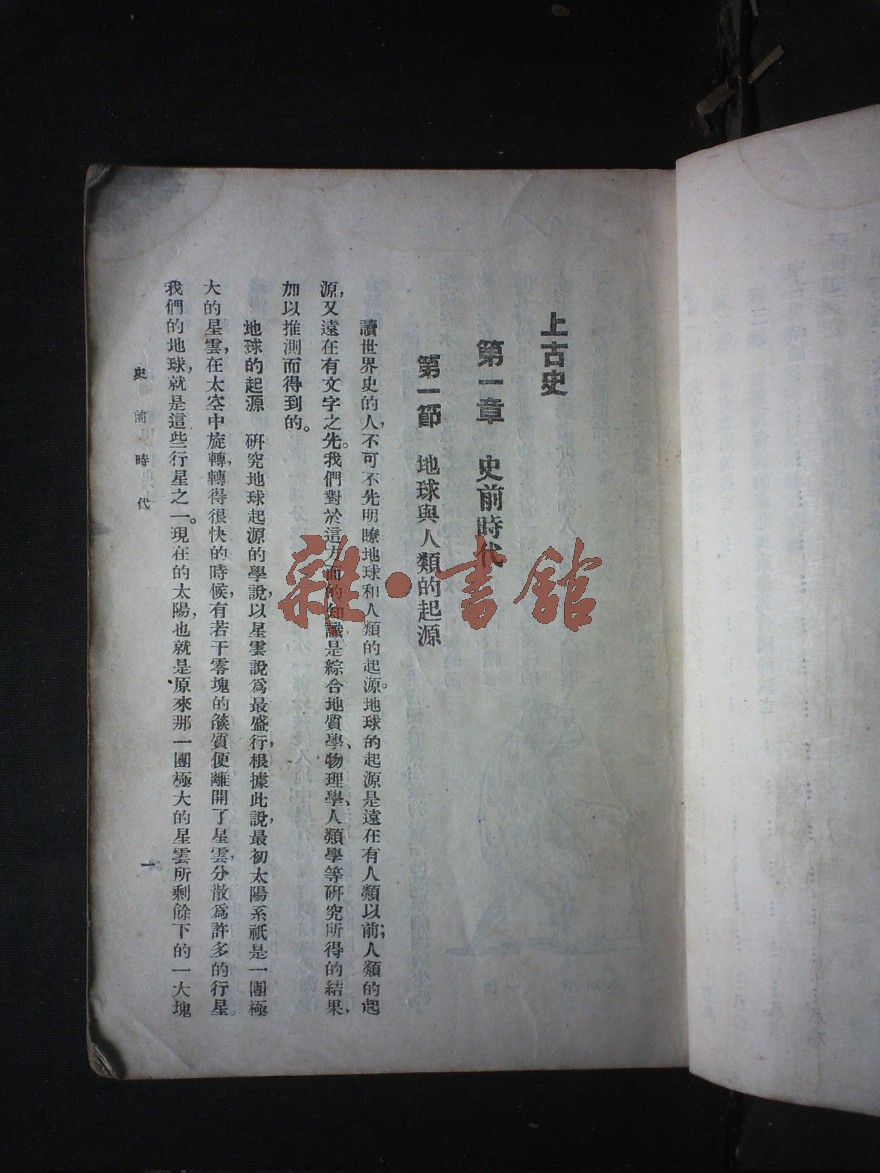 上古史
第一章　史前時代
第一節　地球與人類的起源
讀世界史的人，不可不先明瞭地球和人類的起源。地球的起源是遠在有人類以前；人類的起
源，又遠在有文字之先。我們對於這方面的知識是綜合地質學、物理學、人類學等研究所得的結果，
加以推測而得到的。
地球的起源　研究地球起源的學說，以星雲說爲最盛行，根據此說，最初太陽系祇是一團極
大的星雲，在太空中旋轉，轉得很快的時候，有若干零塊的燄質便離開了星雲，分散爲許多的行星。
我們的地球，就是這些行星之一。現在的太陽，也就是原來那一團極大的星雲所剩餘下的一大塊
史前時代
一
雜·書館